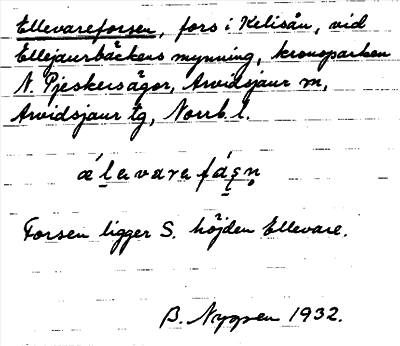 Ellevareforsen, fors i Kelisån, vid
Ellejaurbäckens mynning, kronoparken
N. Pjeskersågor, Arvidsjaur m,
Arvidsjaur tg, Norrb. l.
Forsen ligger S. höjden Ellevare.
B. Nygren 1932.